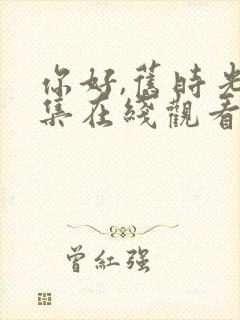 你好,舊時光
集在綫觀看
曾紅强